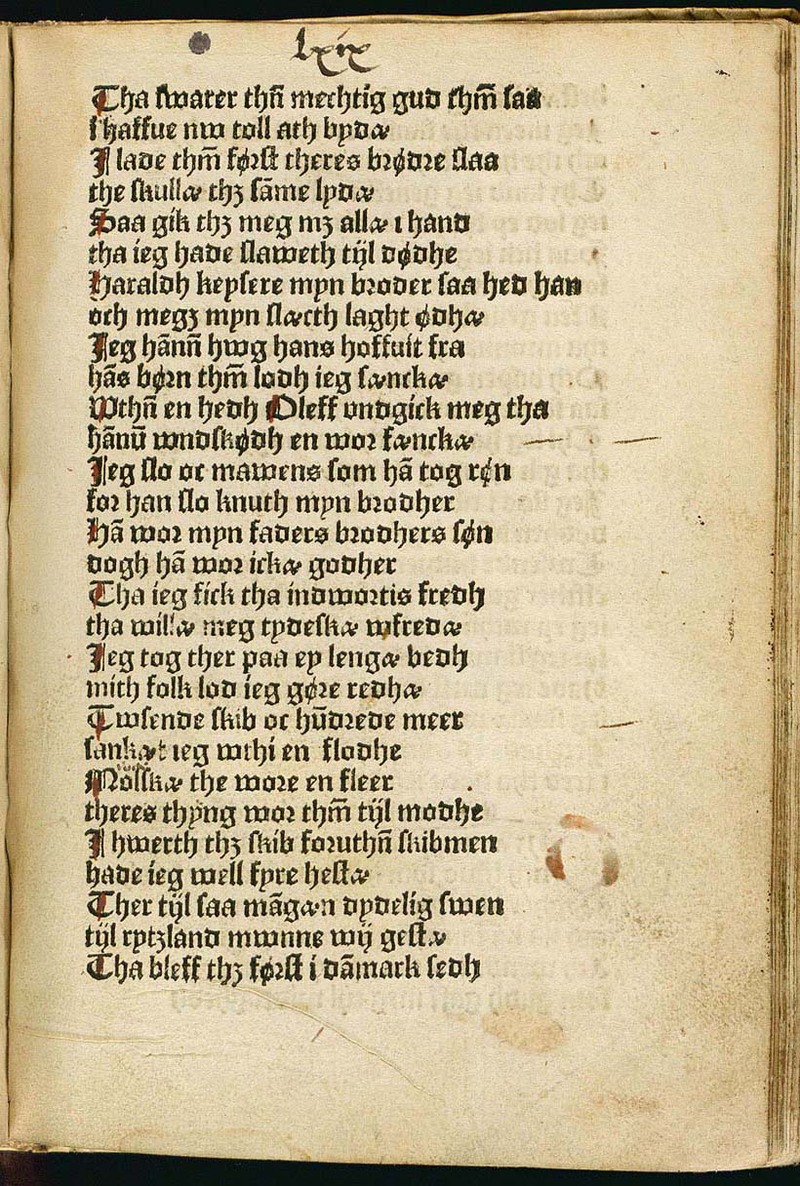 lxix
Tha swarer thn̄ mechtig gud thm̄ saa
i haffue nw toll ath bydæ
I lade thm̄ først theres brødre slaa
the skullæ thꝫ sāme lydæ
Saa gik thꝫ meg mꝫ allæ i hand
tha ieg hade slaweth tijl dødhe
Haraldh keysere myn broder saa hed han
och megꝫ myn slæcth laght ødhæ
Jeg hānn̄ hwg hans hoffuit fra
hās børn thm̄ lodh ieg sænckæ
Wthn̄ en hedh Oleff vndgick meg tha
hānū wndskødh en wor fænckæ
Jeg slo oc mawens som hā tog røn
for han slo knuth myn brodher
Hā wor myn faders brodhers søn
dogh hā wor ickæ godher
Tha ieg fick tha indwortis fredh
tha willæ meg tydeskæ wfredæ
Jeg tog ther paa ey lengæ bedh
mith folk lod ieg gøre redhæ
Twsende skib oc hūdrede meer
sankæt ieg wthi en flodhe
Nölskæ the wore en fleer
theres thyng wor thm̄ tijl modhe
I hwerth thꝫ skib foruthn̄ skibmen
hade ieg well fyre hestæ
Ther tijl saa māgæn dydelig swen
tijl rytꝫland mwnne wij gestæ
Tha bleff thꝫ først i dāmark sedh